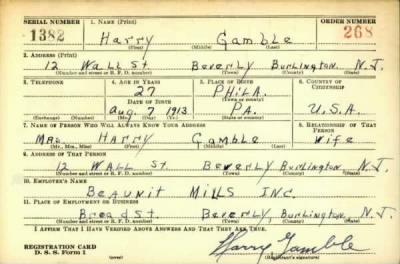 SERIAL NUMBER 1. NAME (Print) ORDER NUMBER
1382 Harry Gamble 268
(First) (Middle) (Last)
2. ADDRESS (Print)
12 Wall St. Beverly Burlington N.J.
(Number and street or R. F. D. number) (Town) (County) (State)
3. TELEPHONE 4. AGE IN YEARS 5. PLACE OF BIRTH 6. COUNTRY OF CITIZENSHIP
27 PHILA.
DATE OF BIRTH (Town or county)
Aug. 7 1913 PA. U.S.A.
(Exchange) (Number) (Mo.) (Day) (Yr.) (State or country)
7. NAME OF PERSON WHO WILL ALWAYS KNOW YOUR ADDRESS 8. RELATIONSHIP OF THAT PERSON
Mrs. Harry Gamble Wife
(Mr., Mrs., Miss) (First) (Middle) (Last)
9. ADDRESS OF THAT PERSON
12 WALL St. Beverly Burlington N.J.
(Number and street or R. F. D. number) (Town) (County) (State)
10. EMPLOYER'S NAME
Beaunit Mills INC.
11. PLACE OF EMPLOYMENT OR BUSINESS
Broad St. Beverly, Burlington, N.J.
(Number and street or R. F. D. number) (Town) (County) (State)
I AFFIRM THAT I HAVE VERIFIED ABOVE ANSWERS AND THAT THEY ARE TRUE.
REGISTRATION CARD
D. S. S. Form 1
Harry Gamble
(Registrant's signature)